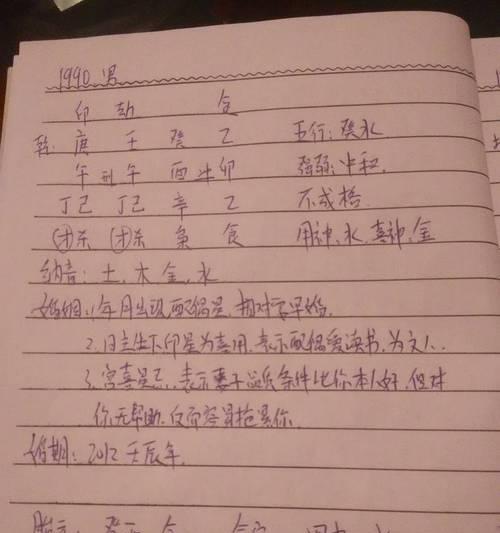 1990 男
卯 劫 食
乾: 庚 壬 癸 乙 五行: 癸水
午 刑 午 酉 冲 卯 强弱: 中和.
丁己 丁己 辛 乙 不成格.
才杀 才杀 枭 食 用神: 水. 喜神: 金
纳音: 土. 木. 金. 水
婚姻: 1. 年月出现配偶星. 相对言早婚.
2. 日主坐下印星为喜用. 表示配偶爱读书. 为文人.
3. 宫喜星忌. 表示妻子品质条件比你本人好. 但对
你无帮助. 反而容易拖累你.
婚期: 2012 壬辰年.